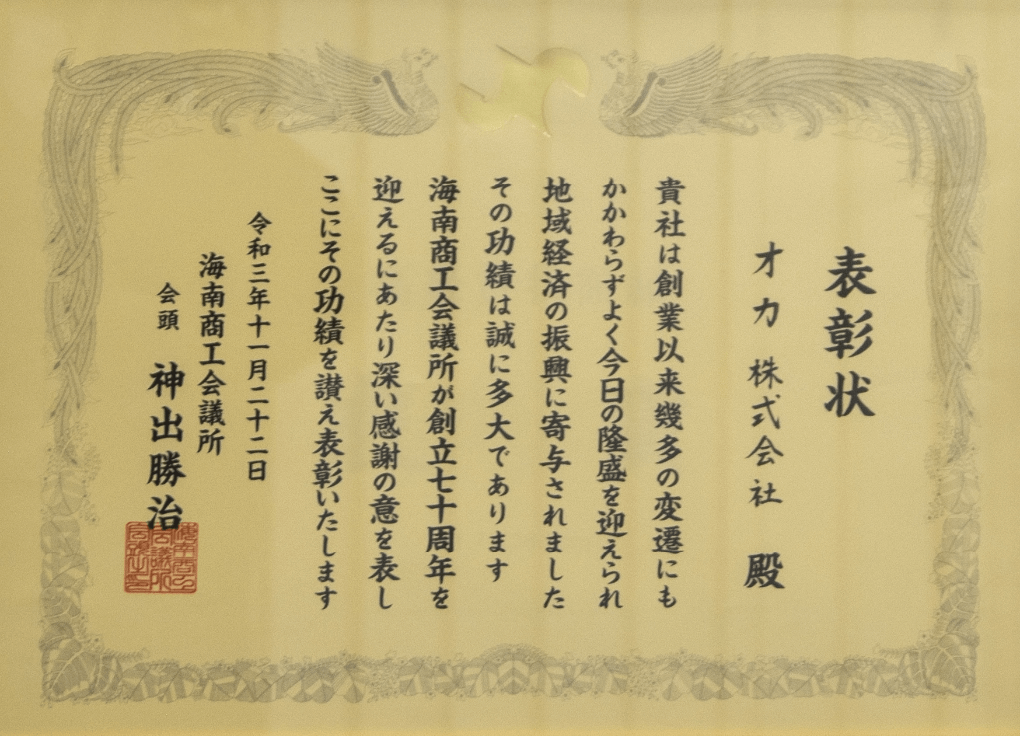 表彰状
オカ株式会社 殿
貴社は創業以来幾多の変遷にも
かかわらずよく今日の隆盛を迎えられ
地域経済の振興に寄与されました
その功績は誠に多大であります
海南商工会議所が創立七十周年を
迎えるにあたり深い感謝の意を表し
ここにその功績を讃え表彰いたします
令和三年十一月二十二日
海南商工会議所
会頭 神出勝治